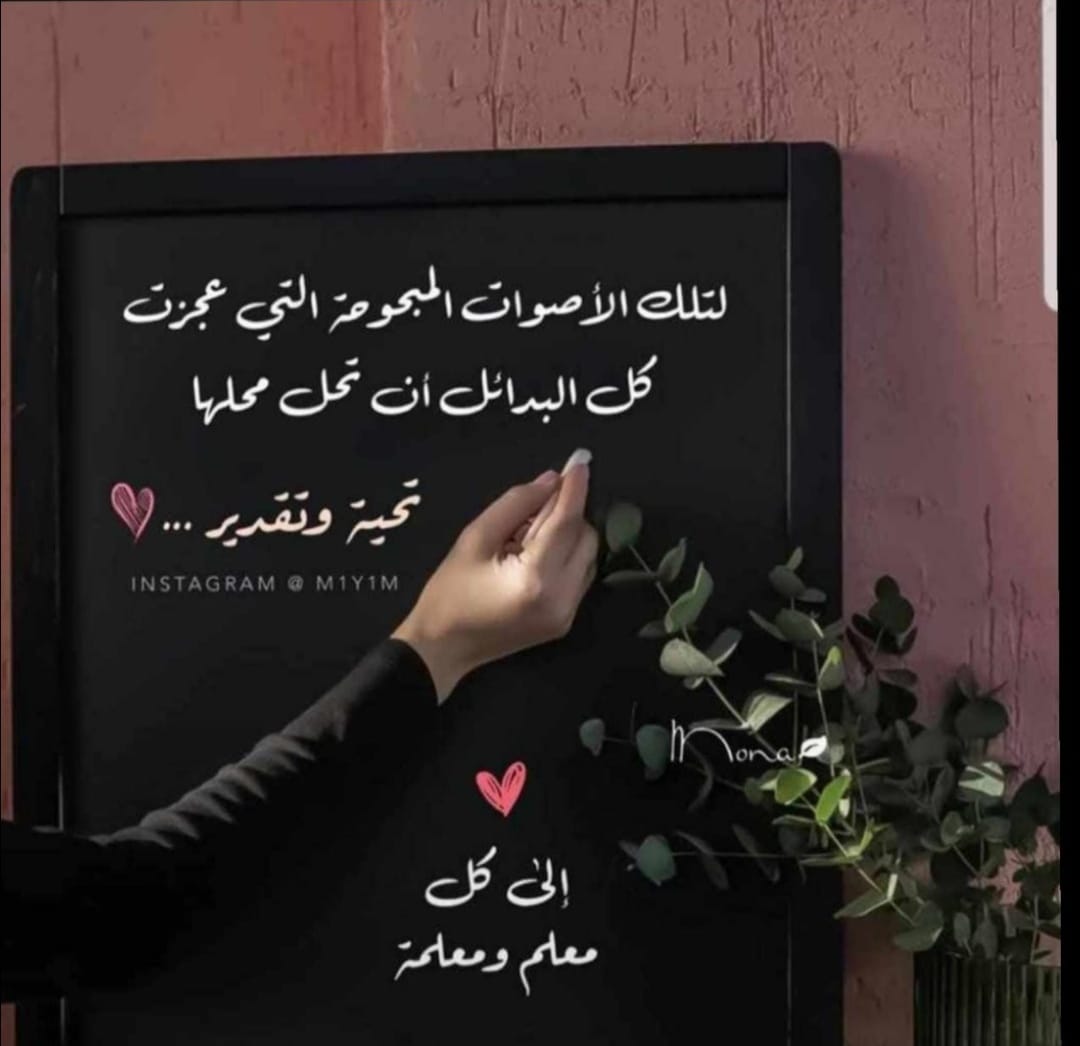 لتلك الأصوات المبحوحة التي عجزت
كل البدائل أن تحل محلها
تحية وتقدير ...
INSTAGRAM @ M1Y1M
Mona
إلى كل
معلم ومعلمة